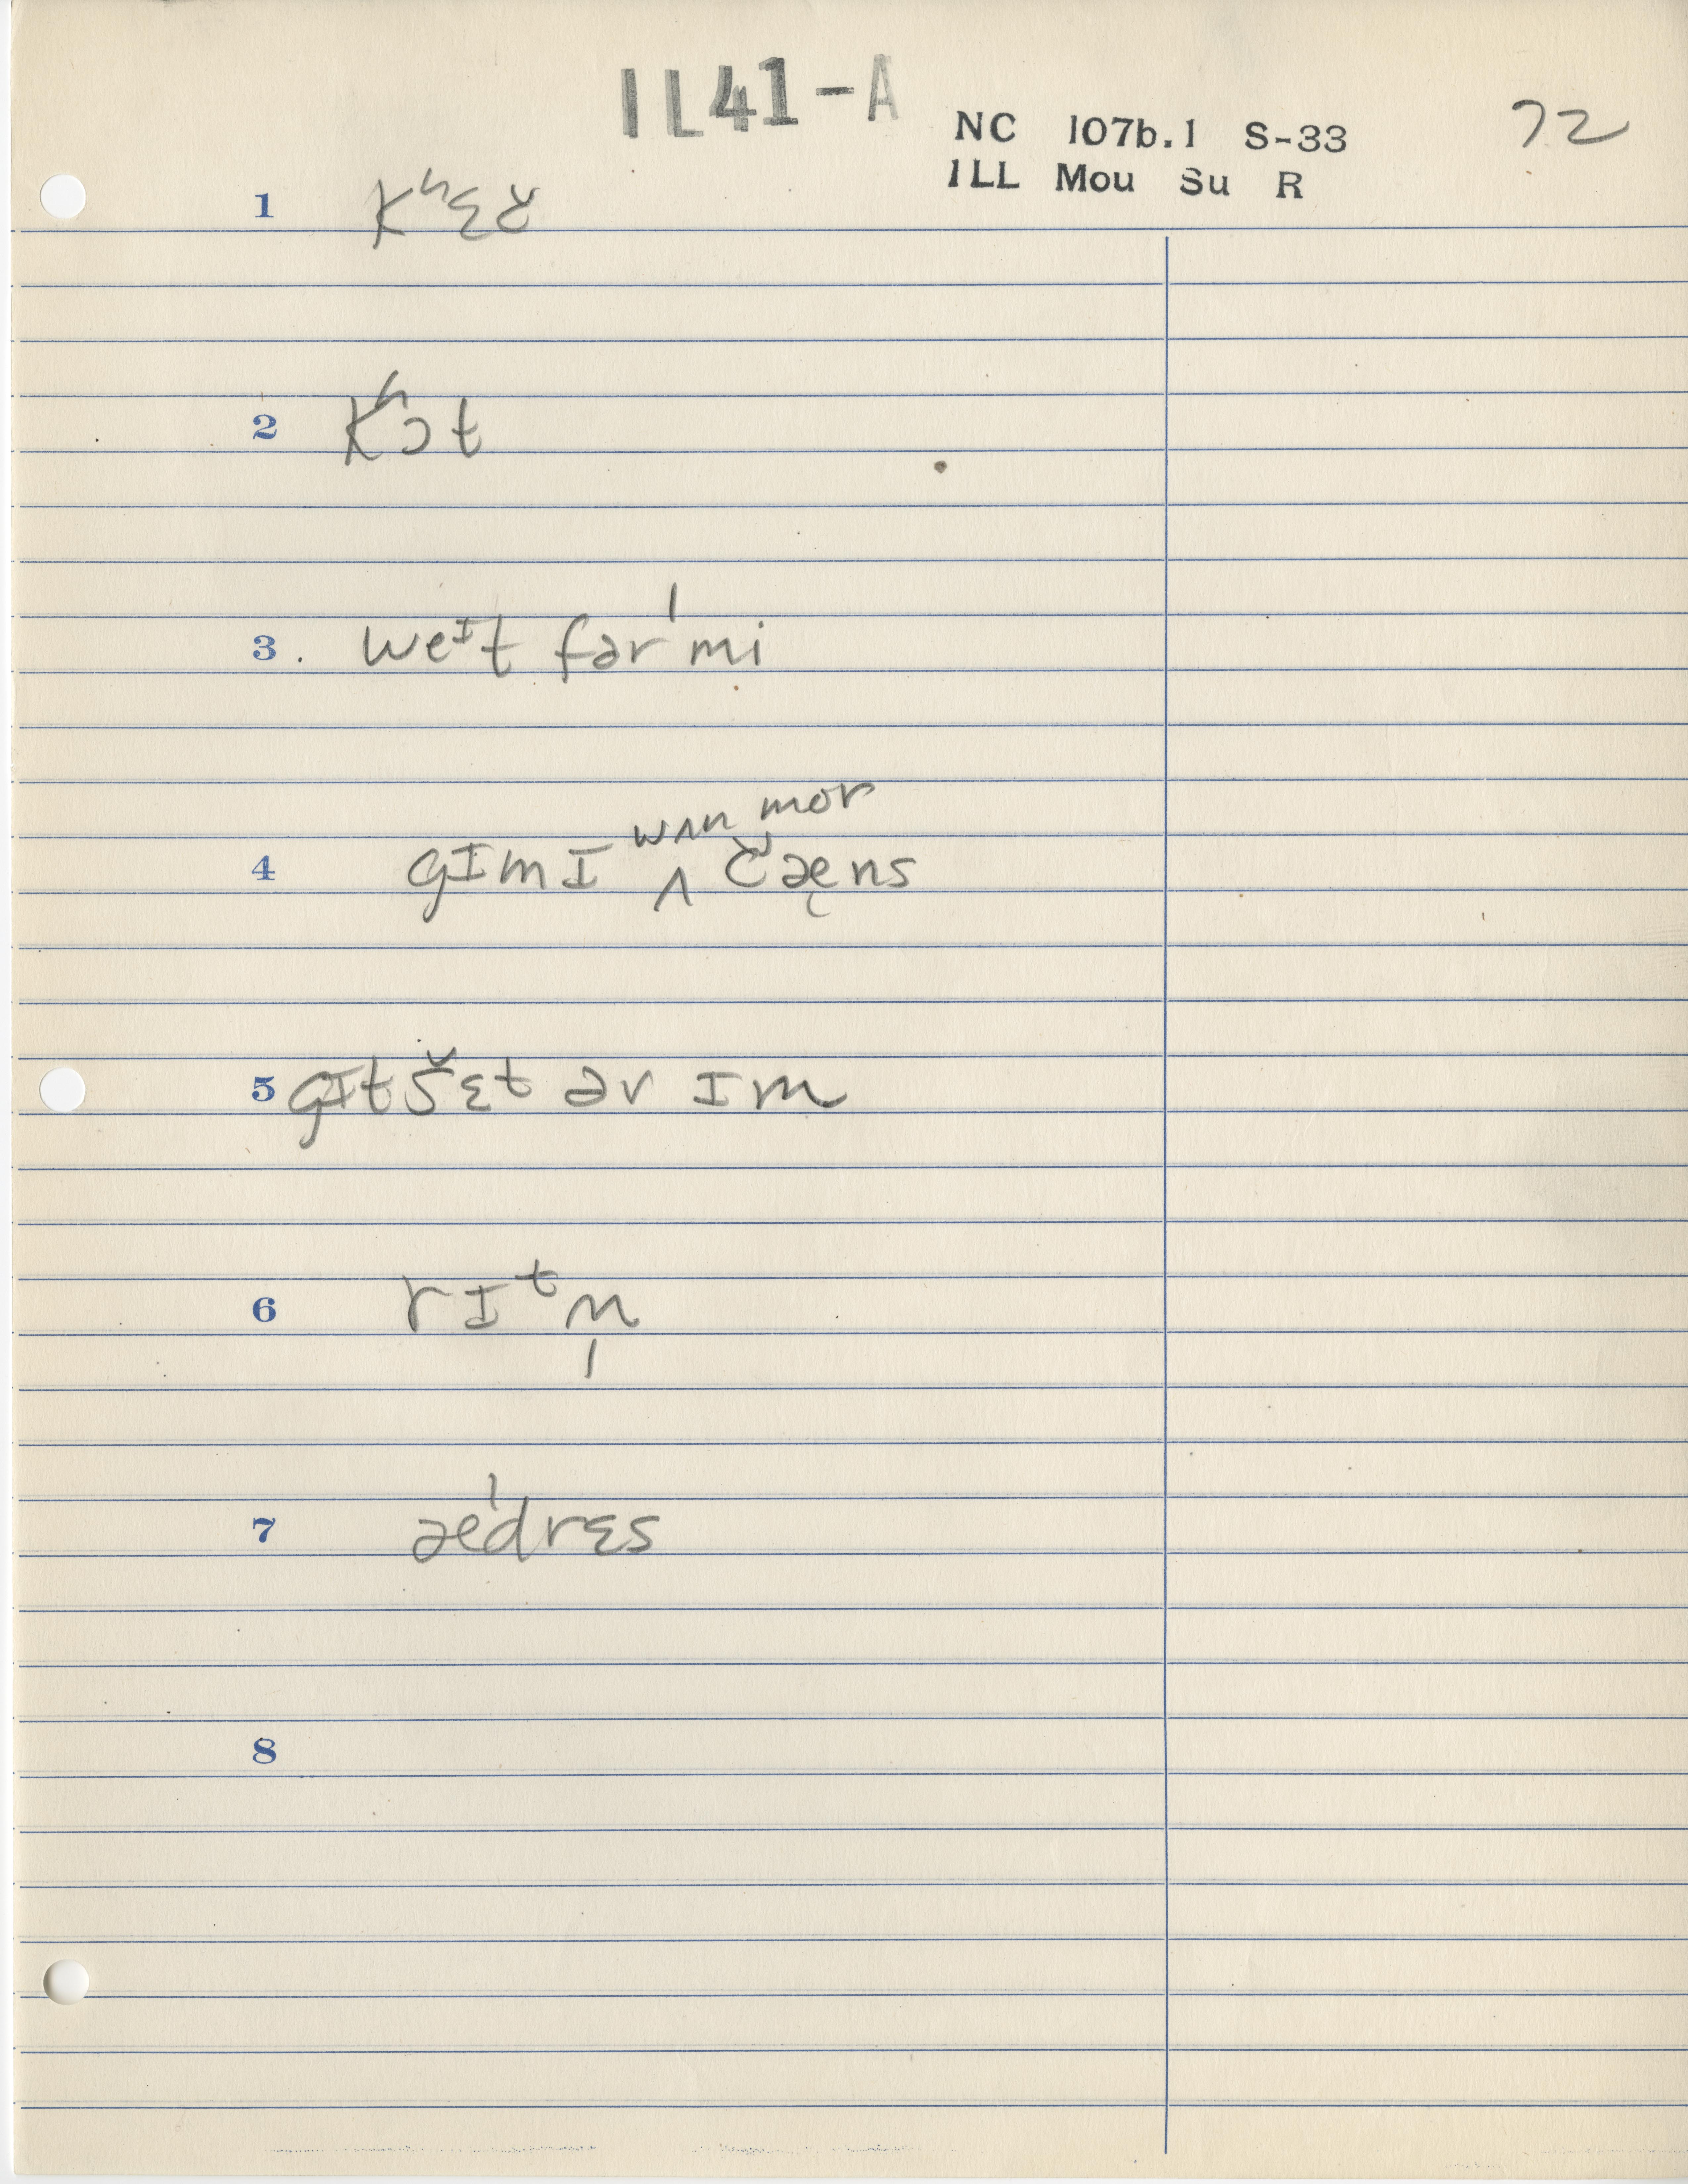 IL41-A
NC 107b.1 S-33 72
ILL Mou Su R
1 Kʰɛɚ
2 Kʰɔt
3 . weᴵt fər ˈmi
wʌn mor
4 gɪmɪ ʌ čæ̨ns
5 gɪtšɛt əv ɪm
6 rɪᵗn̩
7 æˈdrɛs
8